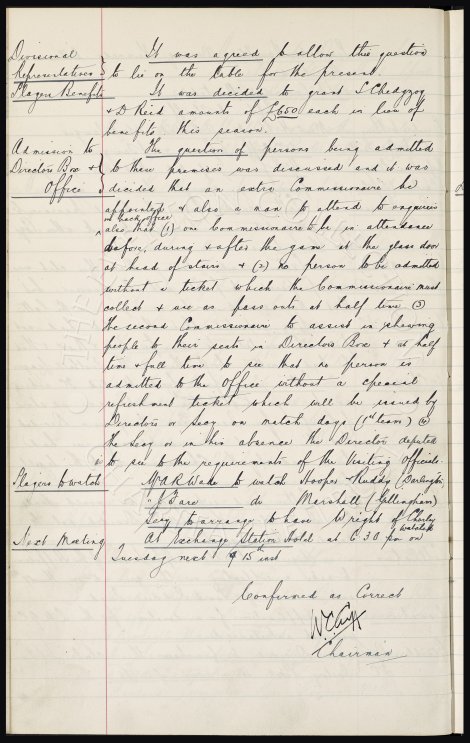 Divisional
Representatives
It was agreed to allow this question
to lie on the table for the present.
Players Benefits
It was decided to grant S Chedgzoy
& D Reid amounts of £650 each in lieu of
benefits this season.
Admission to
Directors Box &
Office
The question of persons being admitted
to these premises was discussed and it was
decided that an extra Commissionaire be
appointed & also a man to attend to enquiries
at back office
also that (1) one Commissionaire to be in attendance
before, during & after the game at the glass door
at head of stairs & (2) no person to be admitted
without a ticket which the Commissionaire must
collect & use as pass outs at half time (3)
the second Commissionaire to assist in shewing
people to their seats in Directors Box & at half
time & full time to see that no person is
admitted to the Office without a special
refreshment ticket which will be issued by
Directors or Secy on match days (1st team) (4)
the Secy or in his absence the Director deputed
to see to the requirements of the Visiting Officials.
Players to watch
Mr A R Wade to watch Hooper & Ruddy (Darlington)
" J Fare do Marshall (Gillingham)
Secy to arrange to have Wright of Chorley
watched
Next Meeting
At Exchange Station Hotel at 6 30 pm on
Tuesday next 15 inst
Confirmed as Correct
Chairman